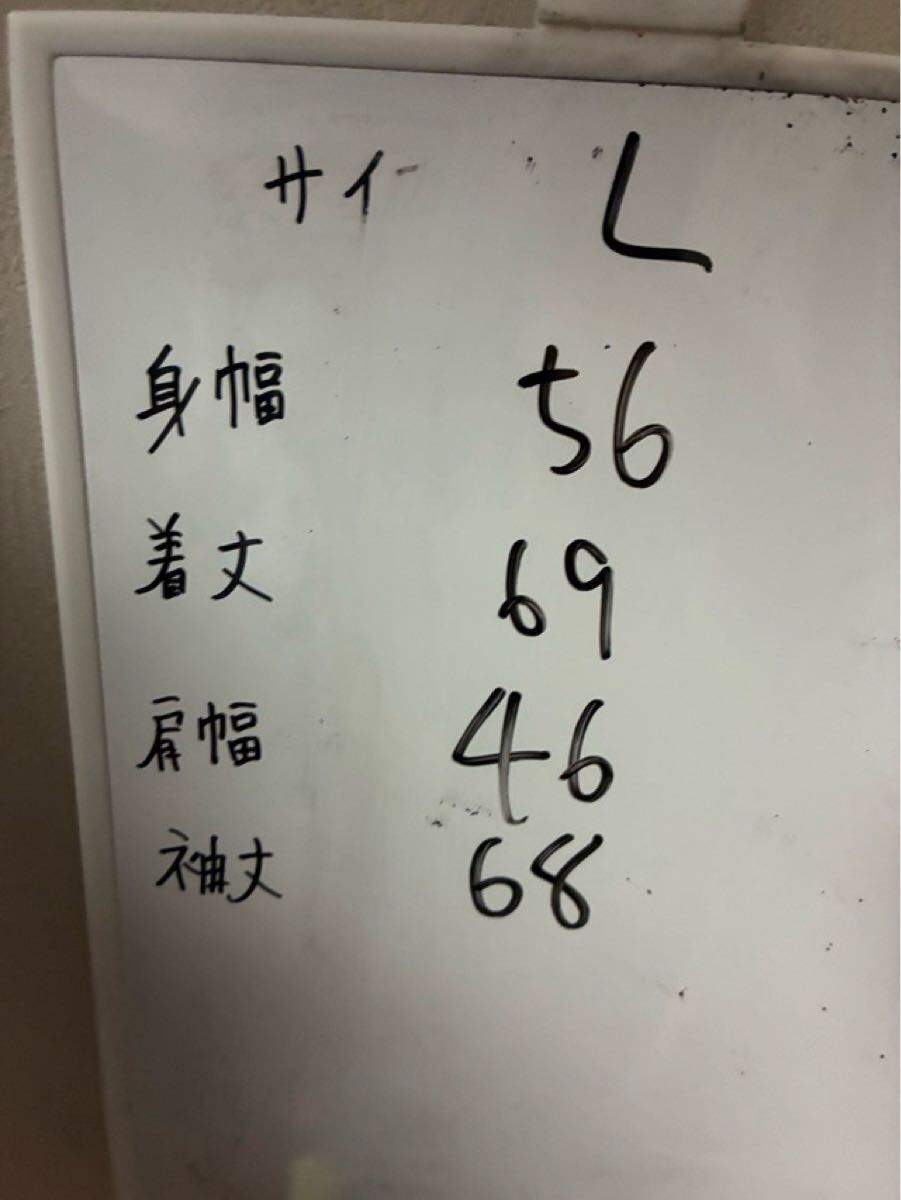 サイ L
身幅 56
着丈 69
肩幅 46
袖丈 68